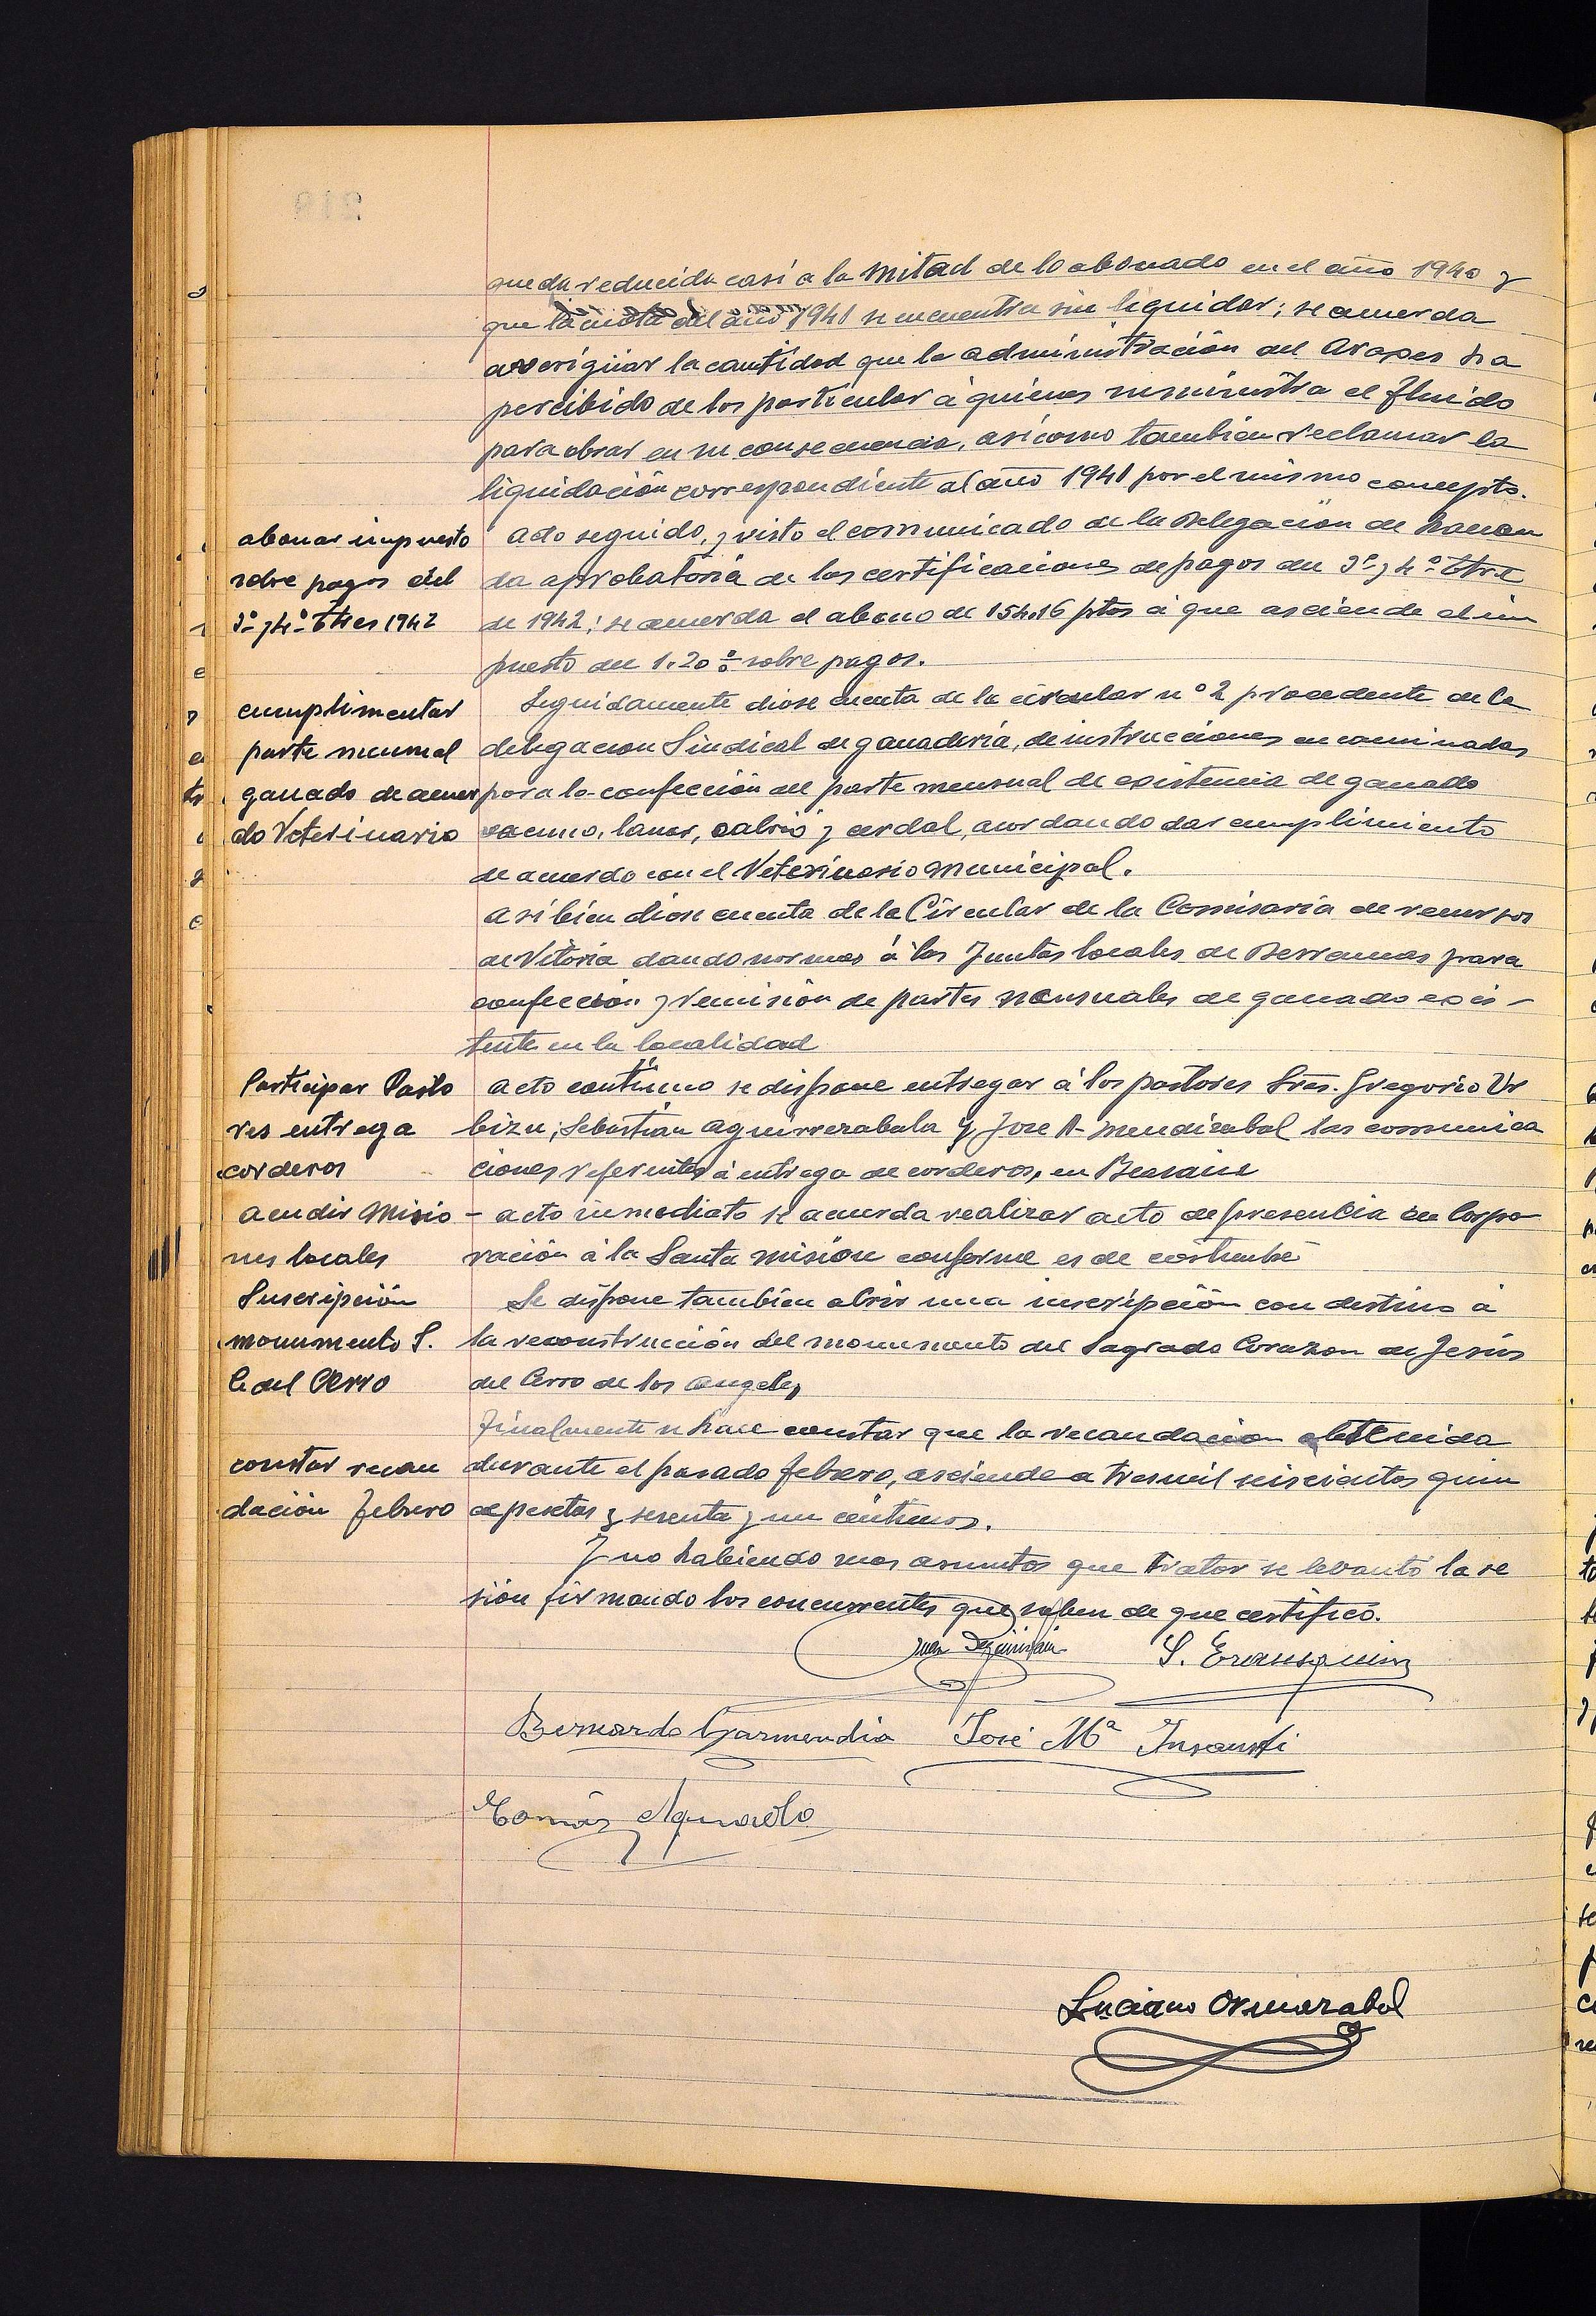 queda reducida casi a la mitad de lo abonado en el año 1940 y
que la cuota del año 1941 se encuentra sin liquidar; se acuerda
averigüar la cantidad que la administración del Araxes ha
percibido de los particular á quienes suministra el fluido
para obrar en su consecuencia, asi como tambien reclamar la
liquidación correspondiente al año 1941 por el mismo concepto.
abonar impuesto
sobre pagos del
3º y 4º Ttres 1942
acto seguido, y visto el comunicado de la Delegación de Hacien
da aprobatoria de las certificaciones de pagos del 3º y 4º Ttre
de 1942; se acuerda el abono de 154,16 ptas á que asciende el im
puesto del 1.20 % sobre pagos.
cumplimentar
parte mensual
ganado de acuer
do Veterinario
Seguidamente diose cuenta de la circular nº 2 procedente de la
delegacion Sindical de ganaderia, de instrucciones encaminadas
para la confección del parte mensual de existencia de ganado
vacuno, lanar, cabrio y cerdal, acordando dar cumplimiento
de acuerdo con el Veterinario municipal.
asi bien diose cuenta de la Circular de la Comisaria de recursos
de Vitoria dando normas á las Juntas locales de Derramas para
confección y remisión de partes mensuales de ganado exis-
tente en la localidad
Participar Pasto
res entrega
corderos
acto continuo se dispone entregar á los pastores Sres. Gregorio Ur
bizu, Sebastian Aguirrezabala y Jose A- Mendizabal las comunica
ciones referentes á entrega de corderos, en Beasain
acudir Misio
nes locales
- acto inmediato se acuerda realizar acto de presencia en Corpo
ración á la Santa misión conforme es de costumbre
Suscripción
monumento S.
C. del Cerro
Se dispone tambien abrir una inscripción con destino á
la reconstrucción del monumento del Sagrado Corazon de Jesús
del Cerro de los Angeles,
constar recau
dación febrero
finalmente se hace constar que la recaudacion obtenida
durante el pasado febrero, asciende a tres mil seiscientas quin
ce pesetas y sesenta y un céntimos.
Y no habiendo mas asuntos que tratar se levantó la se
sión firmando los concurrentes que saben de que certifico.
Juan
S. Erausquin
Bernardo Garmendia José Mª Insausti
Tomás
Luciano Ormazabal